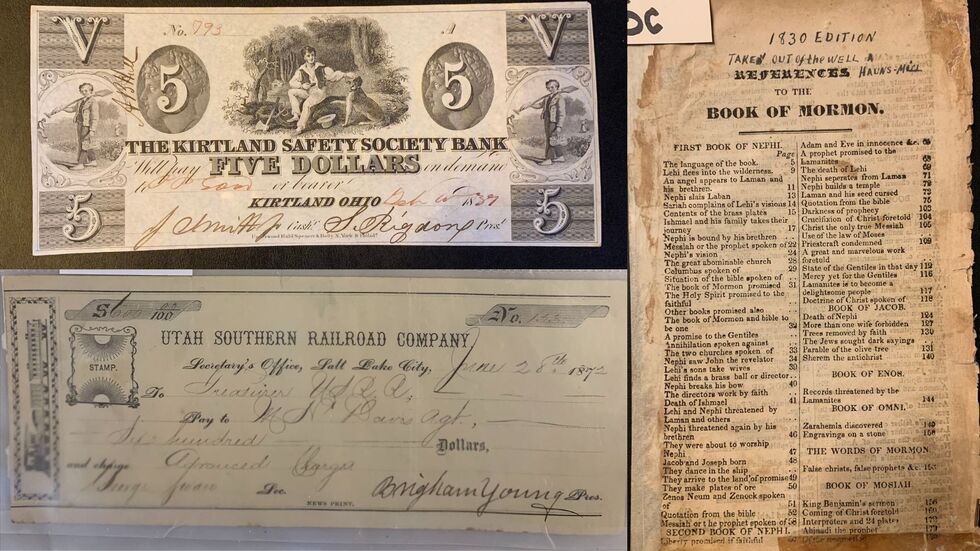 No. 793 A
V V
5 5
THE KIRTLAND SAFETY SOCIETY BANK
Will pay FIVE DOLLARS on demand
to or bearer
KIRTLAND OHIO 1837
5 5
J Smith Jr Cash.r S. Rigdon Pres.t
$600 00/100 No.
UTAH SOUTHERN RAILROAD COMPANY,
STAMP.
Secretary's Office, Salt Lake City, June 28th 1872
To Treasurer U.S.R.R.
Pay to Agt.
Six hundred
Dollars,
and charge Advanced Charges
Sec. Brigham Young Pres.
NEWS PRINT.
OC
1830 EDITION
TAKEN OUT of the WELL
REFERENCES HAUNS-MILL
TO THE
BOOK OF MORMON.
FIRST BOOK OF NEPHI.
Page
The language of the book. 5
Lehi flees into the wilderness. 9
An angel appears to Laman and
his brethren. 11
Nephi slais Laban 13
Sariah complains of Lehi's visions 14
Contents of the brass plates 15
Ishmael and his family takes their
journey 17
Nephi is bound by his brethren
Messiah or the prophet spoken of 22
Nephi's vision 24
The great abominable church 28
Columbus spoken of 29
Situation of the bible spoken of
The book of Mormon promised 31
The Holy Spirit promised to the
faithful
Other books promised also
The book of Mormon and bible to
be one 32
A promise to the Gentiles
Annihilation spoken against
The two churches spoken of 33
Nephi saw John the revelator 24
Lehi's sons take wives 39
Lehi finds a brass ball or director
Nephi breaks his bow 40
The directors work by faith
Death of Ishmael 41
Lehi and Nephi threatened by
Laman and others
Nephi threatened again by his
brethren 46
They were about to worship
Nephi 47
Jacob and Joseph born 48
They dance in the ship
They arrive to the land of promise 49
They make plates of ore 50
Zenos Neum and Zenock spoken
of 51
Quotation from the bible 52
Messiah or the prophet spoken of 58
SECOND BOOK OF NEPHI.
Liberty promised if faithful
Adam and Eve in innocence &c.
A prophet promised to the
Lamanites 68
The death of Lehi 69
Nephi seperates from Laman 71
Nephi builds a temple 72
Laman and his seed cursed 73
Quotation from the bible 75
Darkness of prophecy 103
Crucifixion of Christ foretold 104
Christ the only true Messiah 105
Use of the law of Moses
Priestcraft condemned 109
A great and marvelous work
foretold
State of the Gentiles in that day 112
Mercy yet for the Gentiles 116
Lamanites is to become a
delightsome people 117
Doctrine of Christ spoken of 118
BOOK OF JACOB.
Death of Nephi 124
More than one wife forbidden 127
Trees removed by faith 130
The Jews sought dark sayings
Parable of the olive tree 131
Sherem the antichrist 140
BOOK OF ENOS.
Records threatened by the
Lamanites 144
BOOK OF OMNI.
Zarahemla discovered 149
Engravings on a stone 150
THE WORDS OF MORMON
False christs, false prophets &c.
BOOK OF MOSIAH.
King Benjamin's sermon
Coming of Christ foretold 160
Interpreters and 24 plates 172
Abinadi the prophet